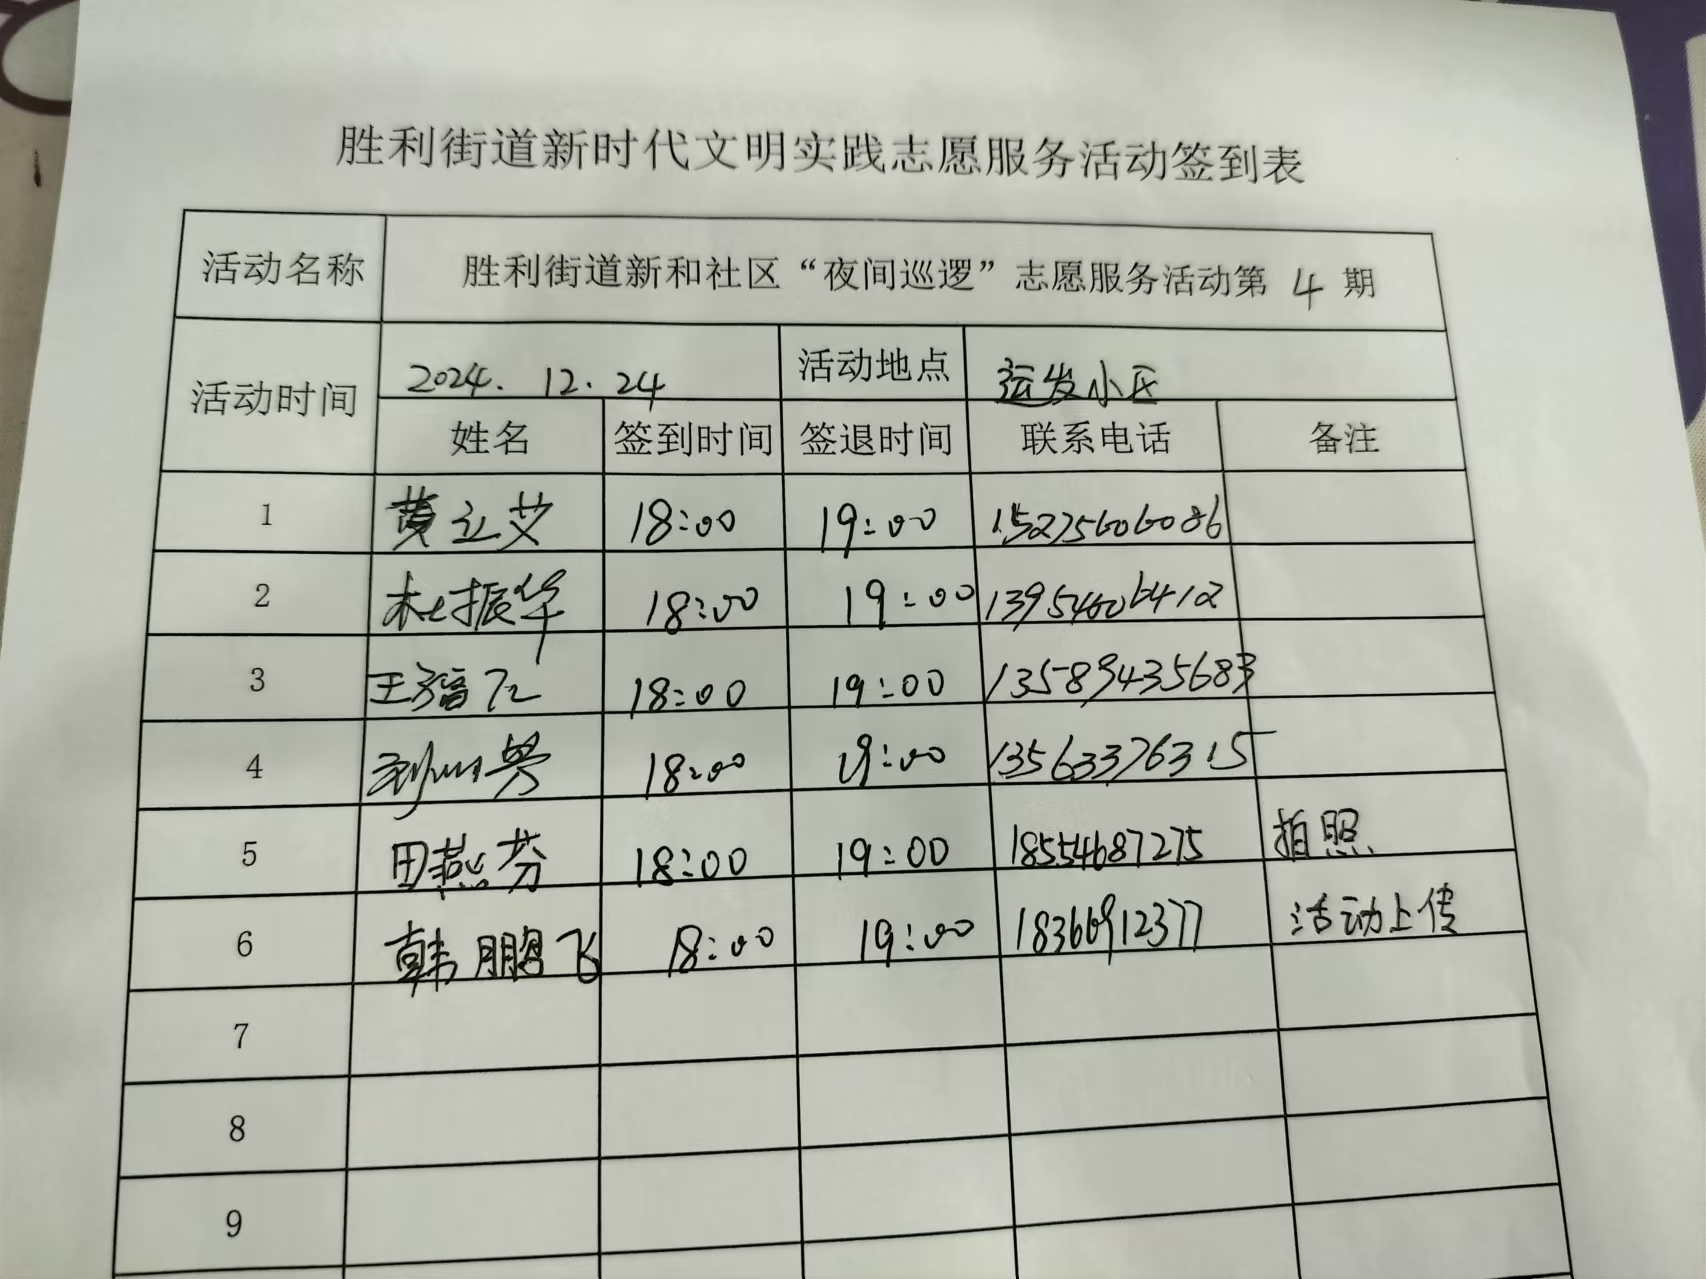 胜利街道新时代文明实践志愿服务活动签到表
活动名称 胜利街道新和社区“夜间巡逻”志愿服务活动第 4 期
活动时间 2024.12.24 活动地点 运发小区
姓名 签到时间 签退时间 联系电话 备注
1 黄立艾 18:00 19:00 15275606086
2 杜振华 18:00 19:00 13954606412
3 王 18:00 19:00 13589435683
4 18:00 19:00 13563376315
5 田燕芬 18:00 19:00 18554687275 拍照
6 韩鹏飞 18:00 19:00 18366912377 活动上传
7
8
9